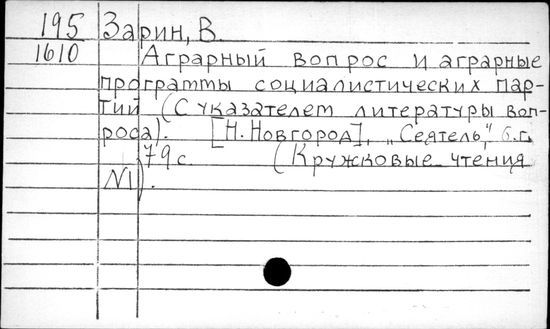 195 Зарин, В.
1610 Аграрный вопрос и аграрные
программы социалистических пар-
тий (С указателем литературы воп-
роса). [Н.Новгород], „Сеятель", б.г.
79с (Кружковые чтения
№1).